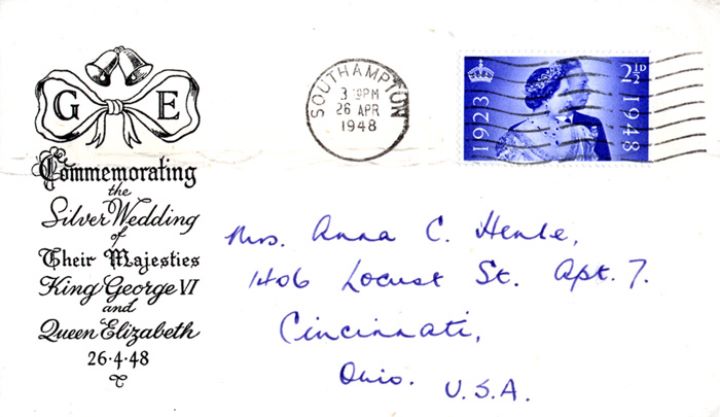 G E
Commemorating
the
Silver Wedding
of
Their Majesties
King George VI
and
Queen Elizabeth
26·4·48
SOUTHAMPTON
26 APR
1948
2½D
1923
1948
Mrs. Anna C. Henle,
1406 Locust St. Apt. 7.
Cincinnati,
Ohio. U.S.A.